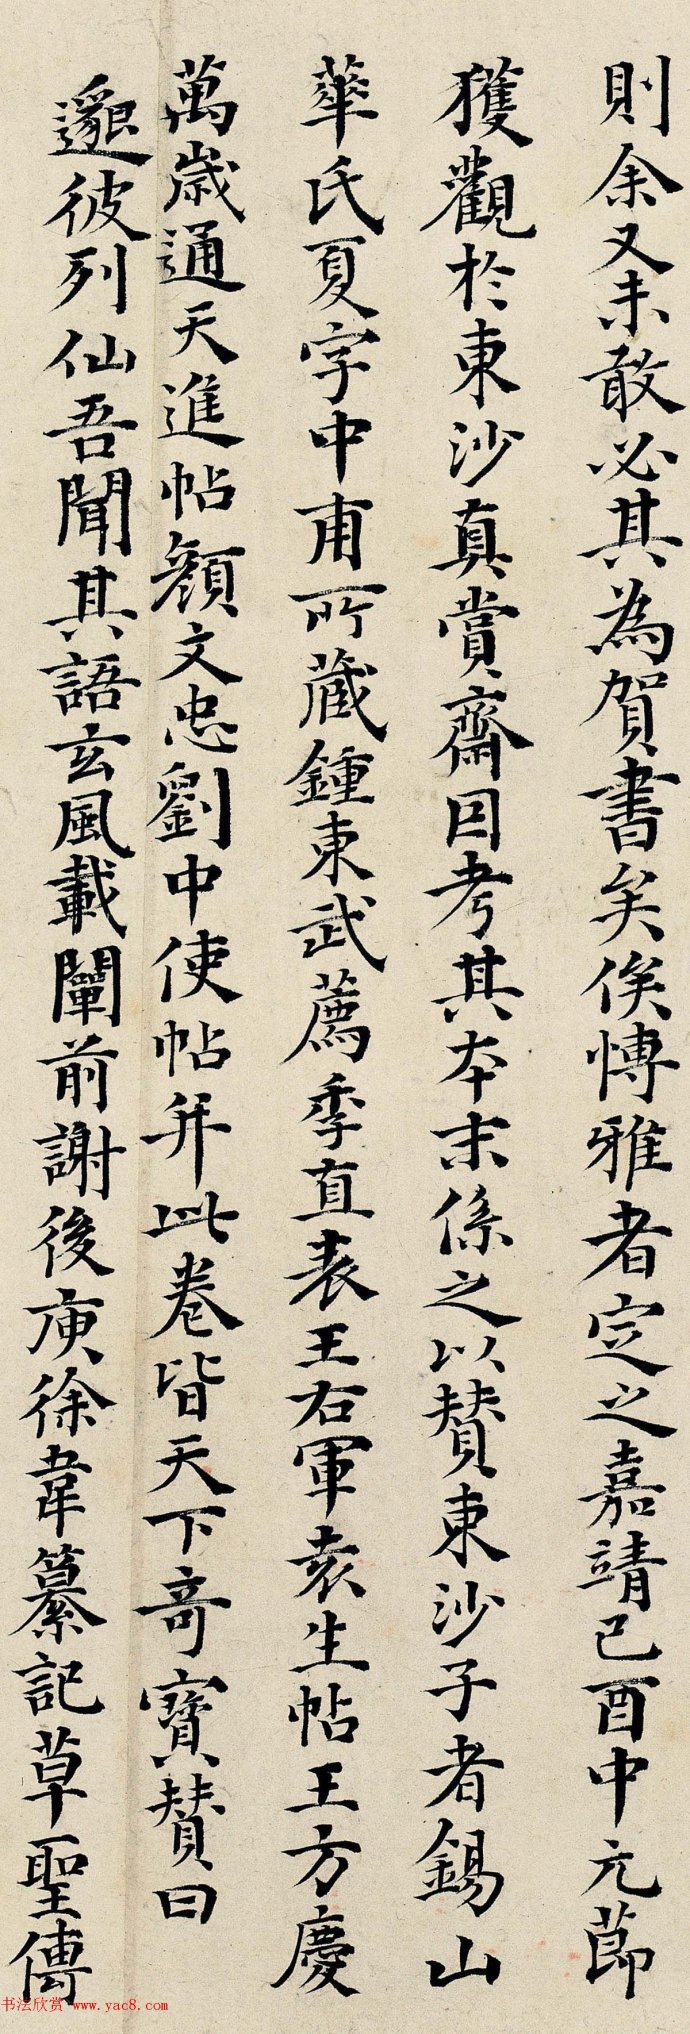 則余又未敢必其為賀書矣俟博雅者定之嘉靖己酉中元節
獲觀於東沙真賞齋因考其本末係之以贊東沙子者錫山
華氏夏字中甫所藏鍾東武薦季直表王右軍袁生帖王方慶
萬歲通天進帖顏文忠劉中使帖并此卷皆天下奇寶贊曰
邈彼列仙吾聞其語玄風載闡前謝後庾徐韋纂記草聖傳
书法欣赏 www.yac8.com